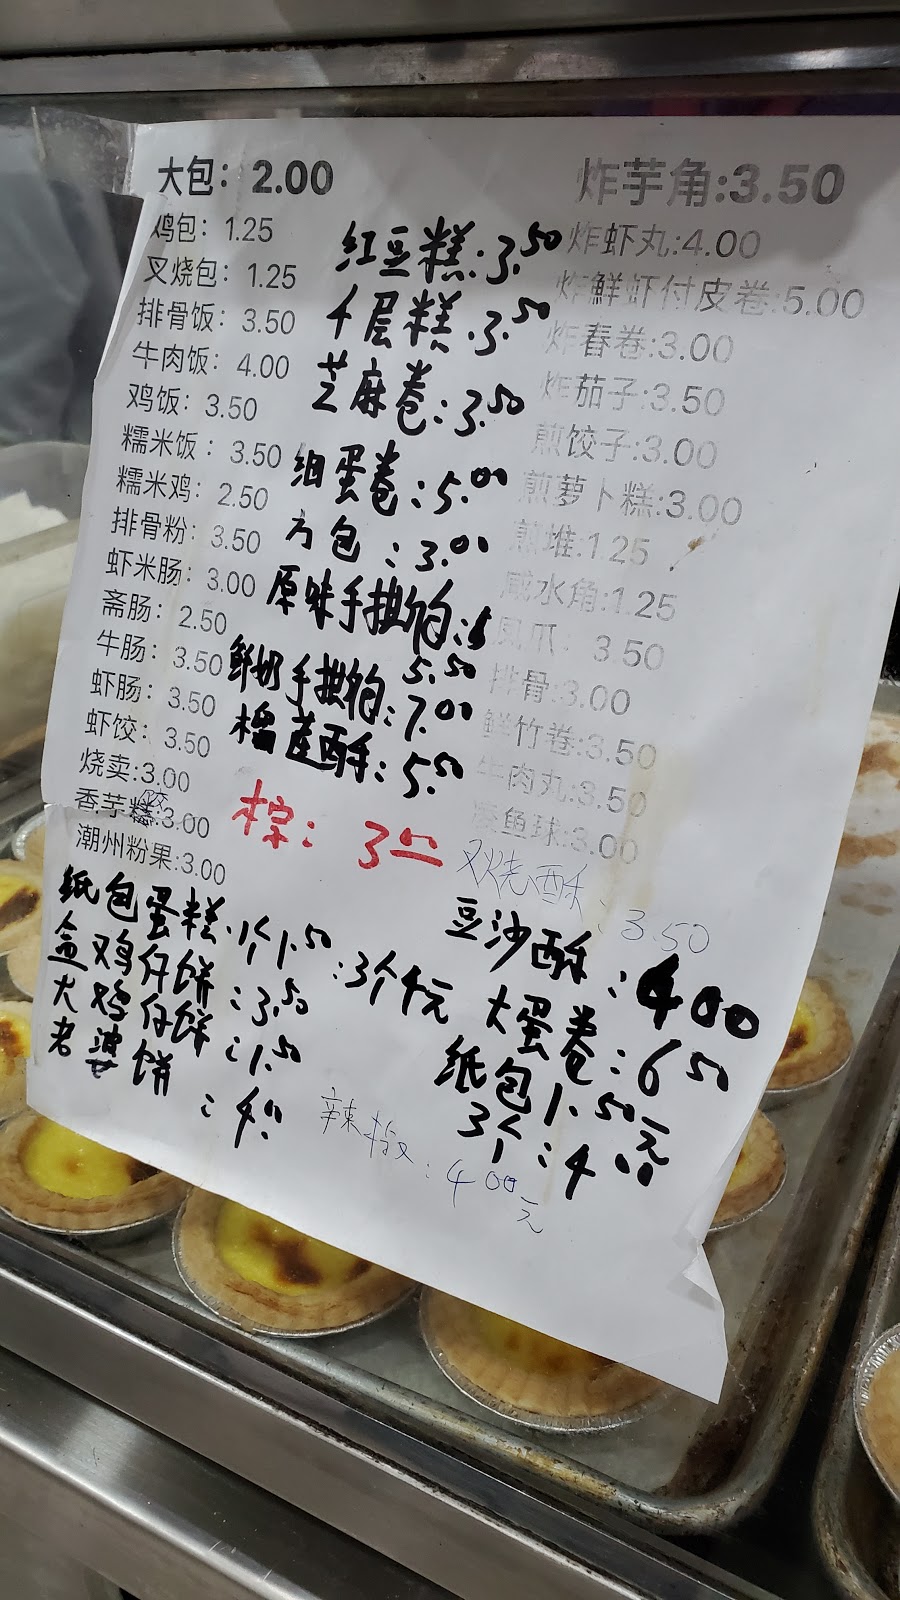 大包：2.00
鸡包：1.25
叉烧包：1.25
排骨饭：3.50
牛肉饭：4.00
鸡饭：3.50
糯米饭：3.50
糯米鸡：2.50
排骨粉：3.50
虾米肠：3.00
斋肠：2.50
牛肠：3.50
虾肠：3.50
虾饺：3.50
烧卖:3.00
香芋糕:3.00
潮州粉果:3.00
红豆糕:3.50
千层糕:3.50
芝麻卷:3.50
细蛋卷:5.00
方包:3.00
原味手撕包:
5.50
鲜奶手撕包:7.00
榴莲酥:5.50
粽:3
炸芋角:3.50
炸虾丸:4.00
炸鲜虾付皮卷:5.00
炸春卷:3.00
炸茄子:3.50
煎饺子:3.00
煎萝卜糕:3.00
煎堆:1.25
咸水角:1.25
凤爪：3 50
排骨:3.00
鲜竹卷:3.50
牛肉丸:3.50
鱼球:3.00
叉烧酥:3.50
豆沙酥:4 00
大蛋卷:6 50
纸包1.50元
3个:4.00
纸包蛋糕.1个1.50:3个4元
盒鸡仔饼:3.50
大鸡仔饼:1.50
老婆饼:4
辣椒:4 00元